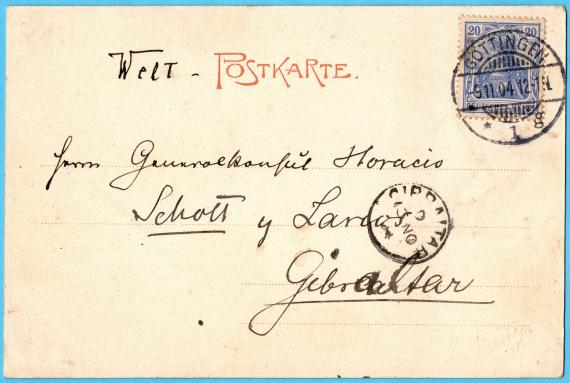 20 20
GÖTTINGEN
9.11.04.12-1N.
* 1 g
Welt - POSTKARTE.
Herrn Generalkonsul Horacio
Schott y Larios
GIBRALTAR
NO
Gibraltar